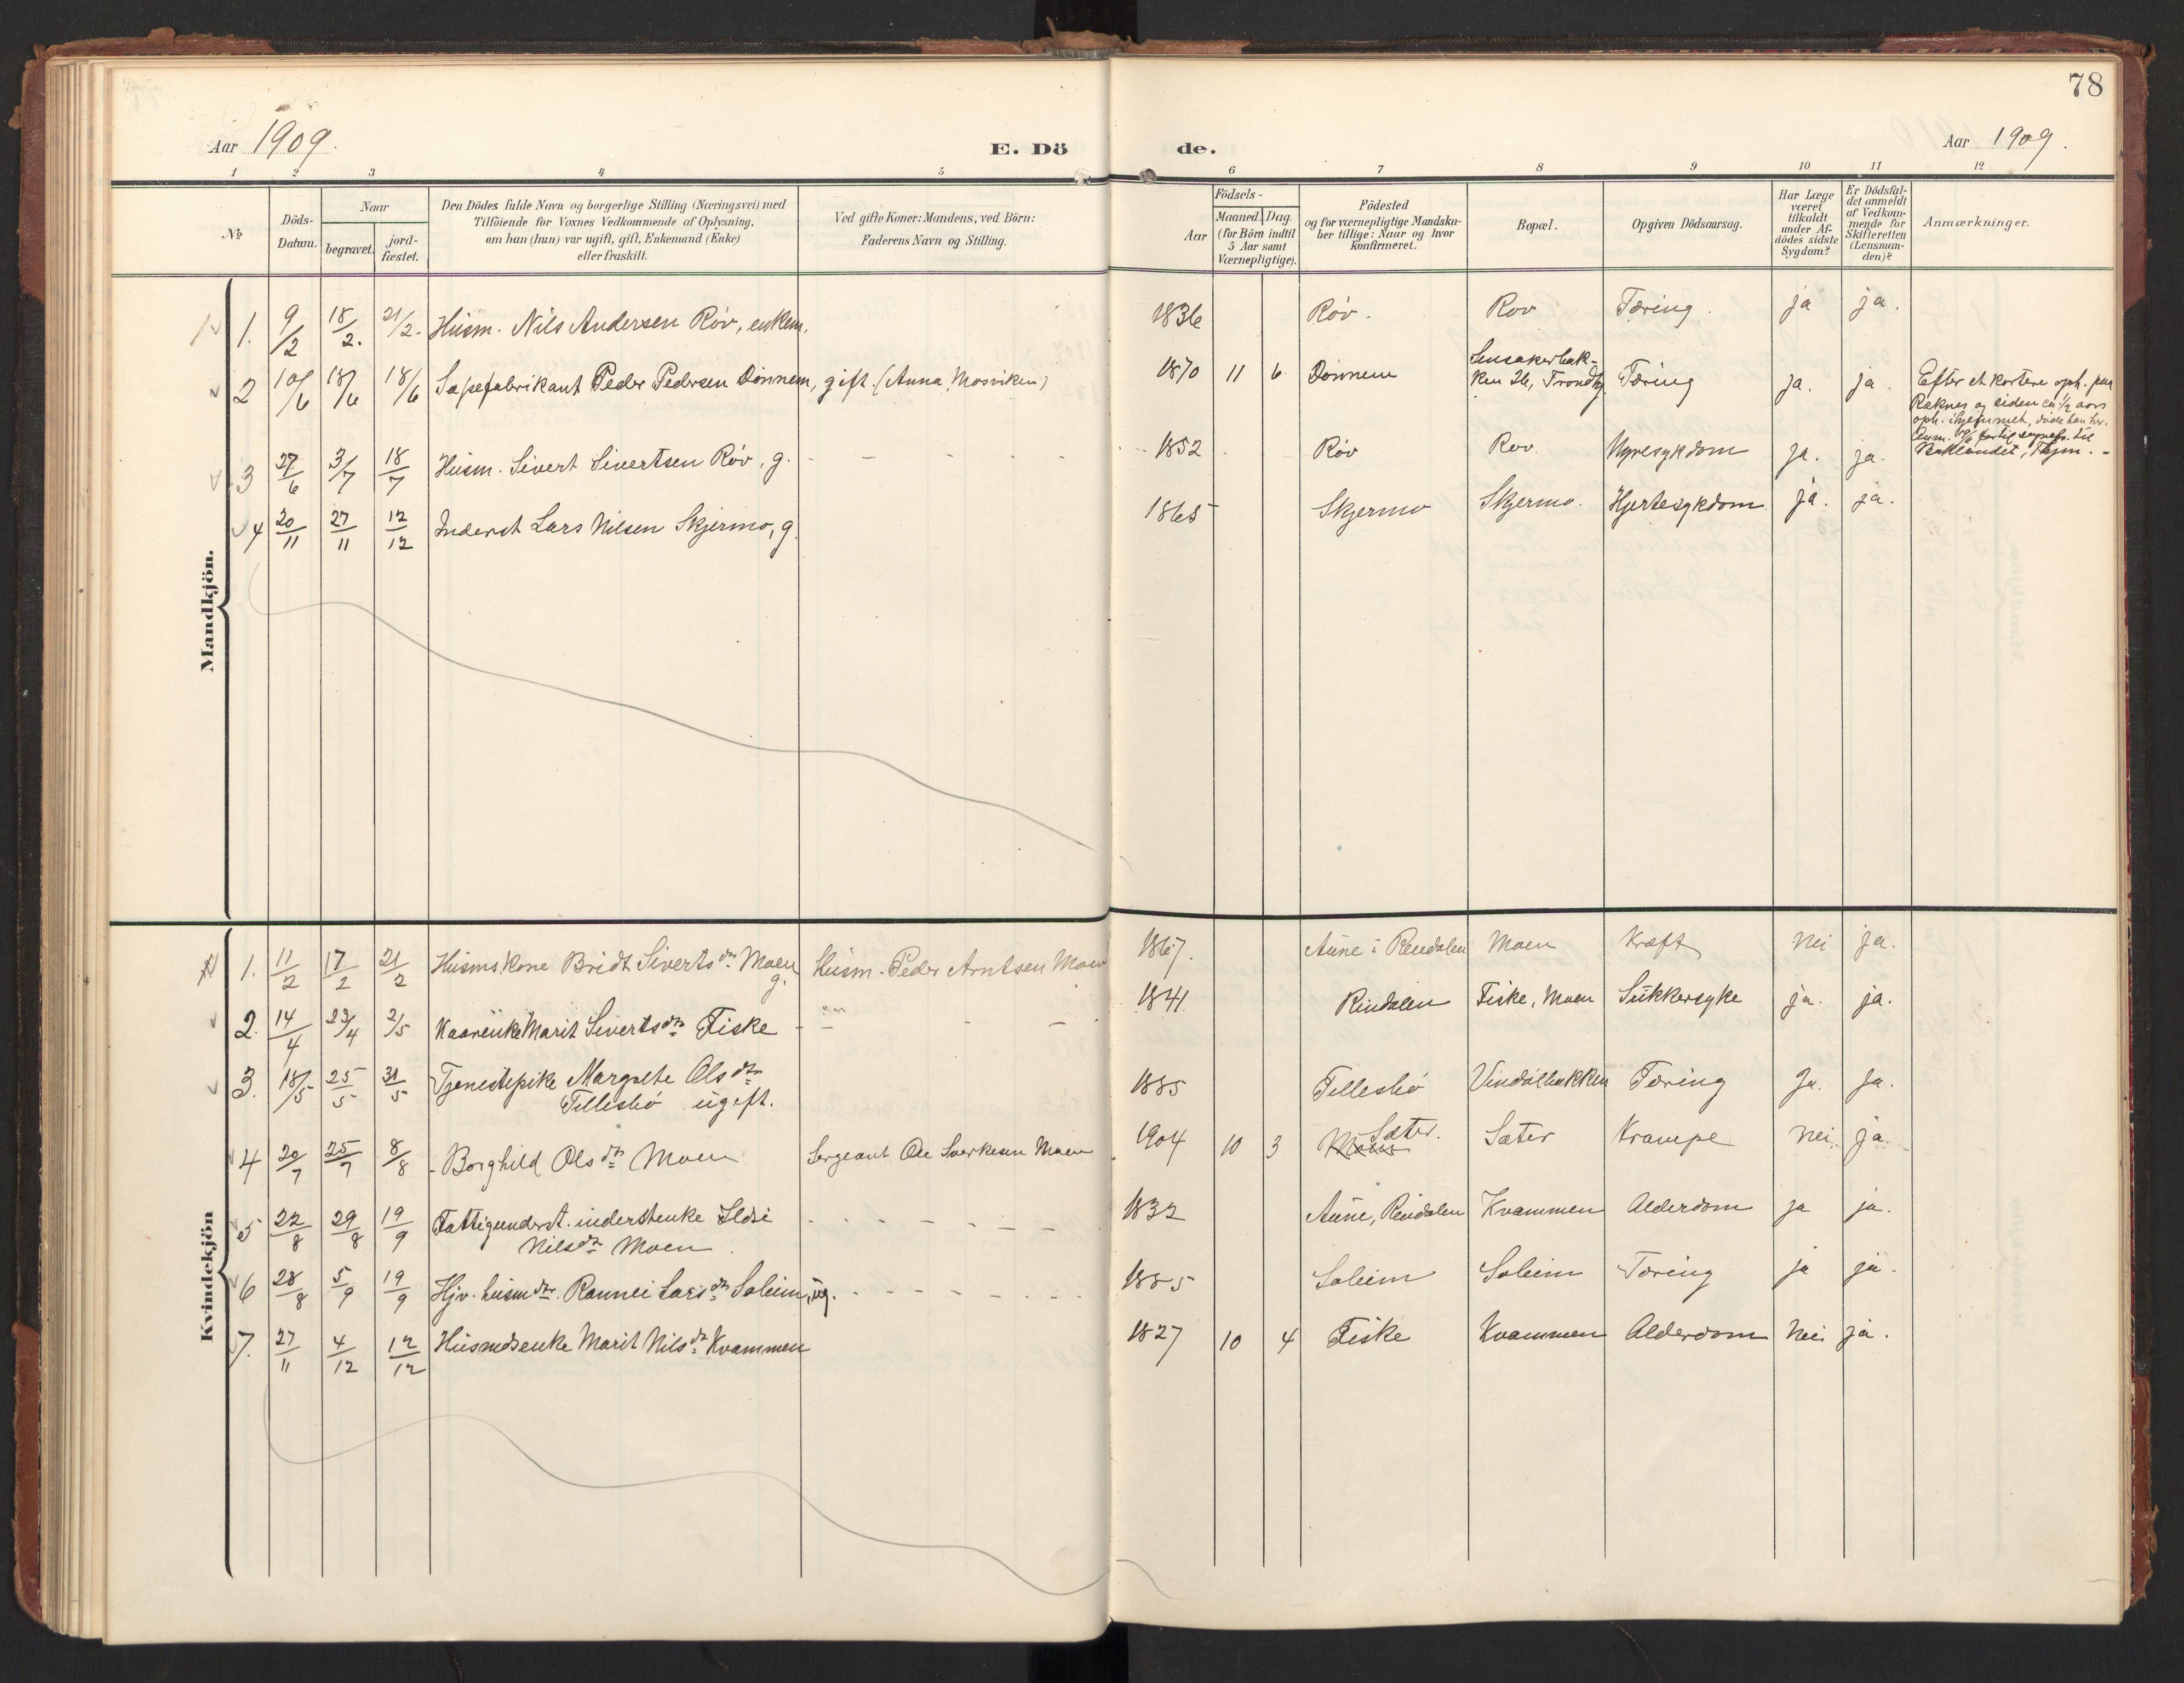 78
Aar 1909.
E. Dö de.
Aar 1909.
1 2 3 4 5 6 7 8 9 10 11 12
№
Döds-Datum.
Naar
begravet.
jord-fæstet.
Den Dödes fulde Navn og borgerlige Stilling (Næringsvei) med
Tilföiende for Voxnes Vedkommende af Oplysning,
om han (hun) var ugift, gift, Enkemand (Enke)
eller fraskilt.
Ved gifte Koner: Mandens, ved Börn:
Faderens Navn og Stilling.
Födsels-
Aar
Maaned. Dag.
(for Börn indtil
5 Aar samt
Værnepligtige).
Födested
og for værnepligtige Mandska-
ber tillige: Naar og hvor
konfirmeret.
Bopæl.
Opgiven Dödsaarsag.
Har Læge
været
tilkaldt
under Af-
dödes sidste
Sygdom?
Er Dödsfal-
det anmeldt
af Vedkom-
mende for
Skifteretten
(Lensman-
den)?
Anmærkninger.
Mandkjön.
1. 9/2 18/2. 21/2. Husm. Nils Andersen Röv, enkem. 1836 Röv. Rov Tæring. ja ja.
2 10/6 18/6 18/6 Sæpefabrikant Peder Pedersen Dönnem, gift. (Anna Mosviken) 1870 11 6 Dönnem
ken 26, Trondhj. Tæring ja. ja. Efter et kortere oph. paa
Reknes og siden ca 1/2 aars
oph. i hjemmet, döde han her.
Baklandet, Thjm. -
3 27/6 3/7 18/7 Husm. Sivert Sivertsen Röv, g. - - - - - 1852 Röv Rov. Nyresykdom ja. ja.
4 20/11 27/11 12/12 Inderst Lars Nilsen Skjermo, g. 1865 Skjermo Skjermo. Hjertesykdom. ja. ja.
Kvindekjön
1. 11/2 17/2 21/2 Husmskone Bridt Sivertsdtr Moen g. Husm. Peder Arntsen Moen 1867. Aune i Rendalen Moen Kræft nei ja.
2. 14/4 23/4 2/5 Kaarenke Marit Sivertsdtr Fiske - - - 1841. Rindalen Fiske, Moen Sukkersyke ja. ja.
3. 18/5 25/5 31/5 Tjenestepike Margrete Olsdtr
Tillesbö ugift. 1885 Tillesbö Vindölbakken Tæring Ja. ja.
4 20/7 25/7 8/8 - Borghild Olsdtr Moen Sergeant Ole Sverkesen Moen 1904 10 3 Moen Sæter. Sæter Krampe nei. ja.
5 22/8 29/8 19/9 Fattigunderst. inderstenke Ildri
Nilsdtr Moen. - - - - - 1832 Aune, Rindalen Kvammen Alderdom ja ja.
6 28/8 5/9 19/9 Hjv. husmdtr. Rannei Larsdtr Solem, ug. - - - - - 1885 Soleim Soleim Tæring ja ja.
7. 27/11 4/12 12/12 Husmdsenke Marit Nilsdtr Kvammen 1827 10 4 Fiske Kvammen Alderdom nei ja.